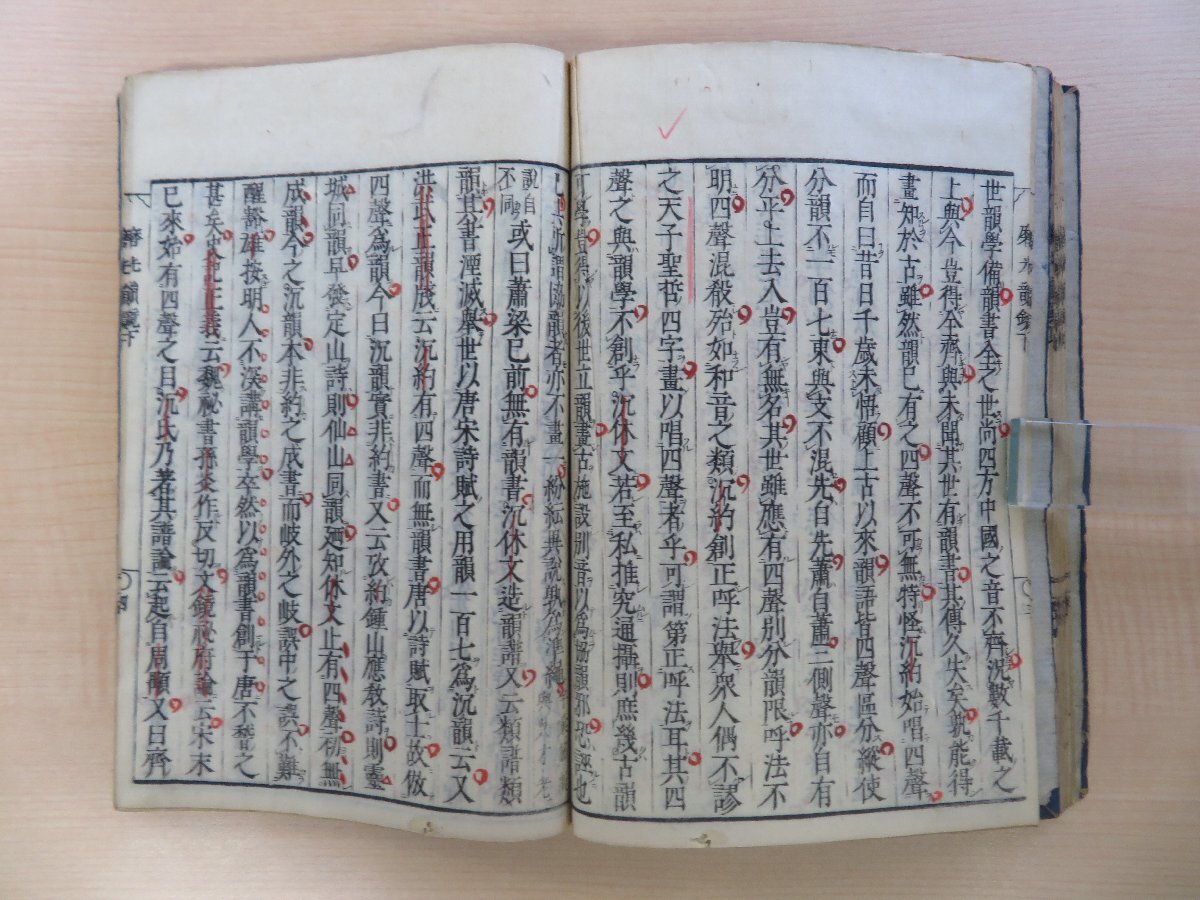 世韻學備韻書全之世尚四方中國之音不齊況數千載之
上與今豈得全齊與未聞其世有韻書其傳久失矣孰能得
畫知於古雖然韻已有之四聲不可無特怪沉約始唱四聲
而自曰昔日千歳未悟顧上古以來韻語皆四聲區分縱使
分韻不一百七東與支不混先自先蕭自蕭二側聲亦自有
分乎上去入豈有無名其世雖應有四聲別分韻限呼法不
明四聲混殽殆如和音之類沉約創正呼法舉衆人偶不謬
之天子聖哲四字畫以唱四聲者乎可謂第正呼法耳其四
聲之與韻學不創乎沉休文若至私推究通攝則庶幾古韻
以後世立韻畫古施設別音以爲協韻邪恐誣也
已其所謂協韻者亦不畫一紛紜異說孰
說自
不同或曰蕭梁已前無有韻書沉休文造韻譜又云類譜類
韻其書湮滅舉世以唐宋詩賦之用韻一百七爲沉韻云又
洪武正韻箋云沉約有四聲而無韻書唐以詩賦取士故倣
四聲爲韻今日沉韻實非約書又云攷約鍾山應教詩則靈
城同韻早發定山詩則仙山同韻廼知休文止有四聲初無
成韻今之沉韻本非約之成書而岐外之岐誤中之誤不難
醒豁雄按明人不深講韻學卒然以爲韻書創于唐不瞽之
甚矣史記正義云魏祕書孫炎作反切文鏡祕府論云宋末
已來始有四聲之目沉氏乃著其譜論云起自周顒又曰齊